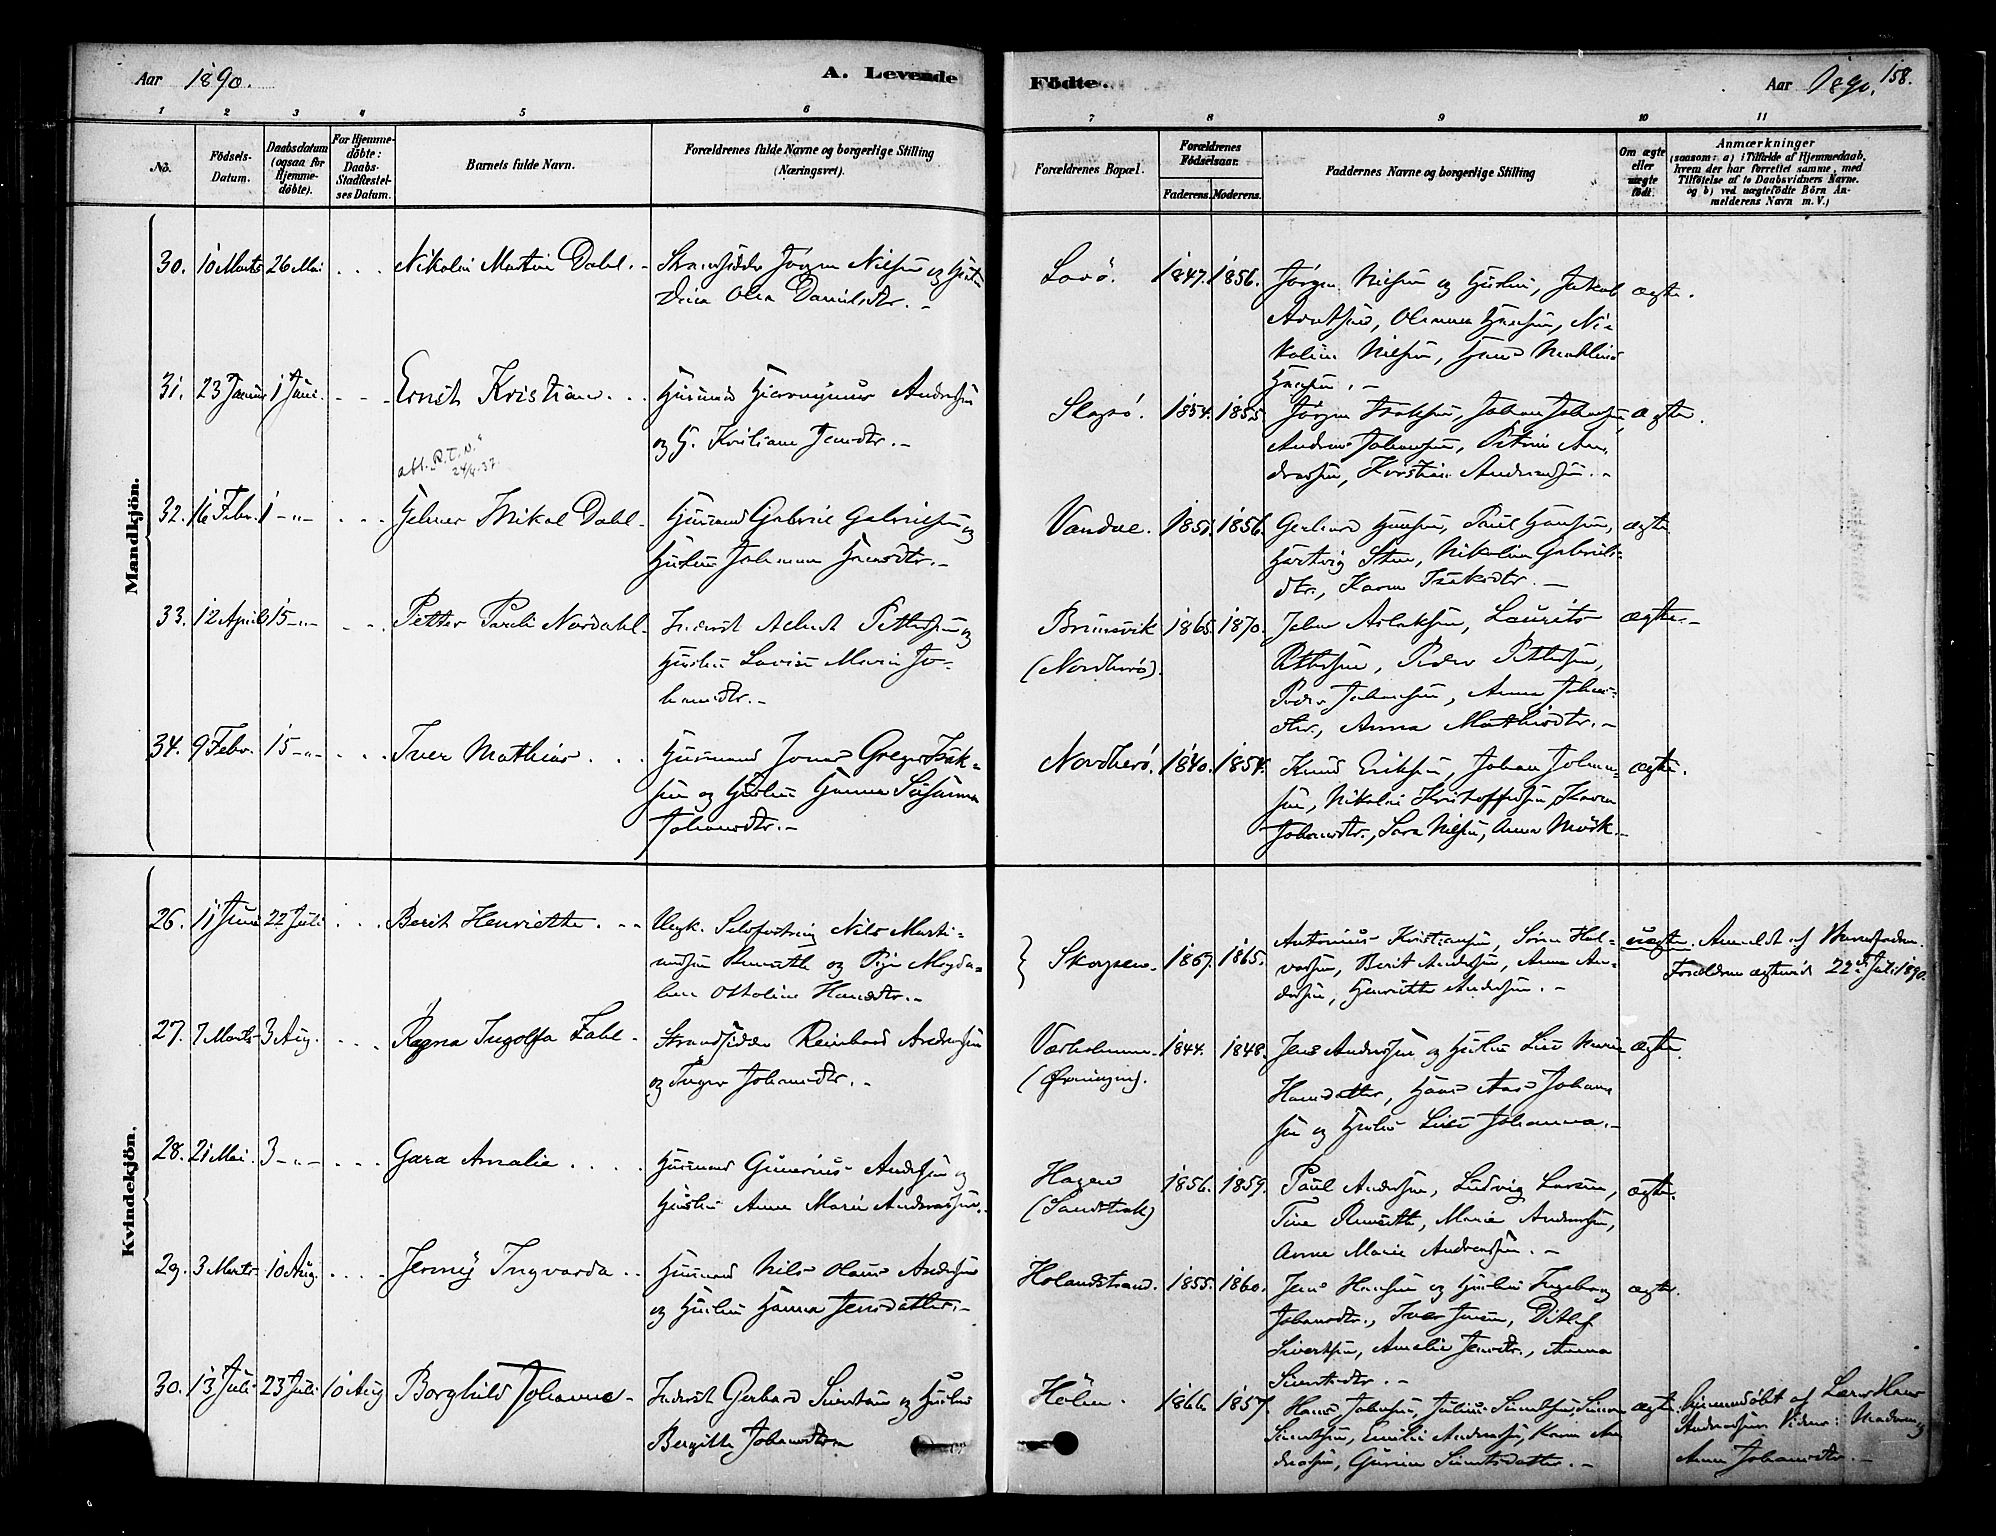 Aar 1890.
A. Levende
Födte.
Aar 1890. 158.
1 2 3 4 5 6 7 8 9 10 11
No.
Födsels-
Datum.
Daabsdatum
(ogsaa for
Hjemme-
döbte).
For Hjemme-
döbte:
Daabs-
Stadfæstel-
ses Datum.
Barnets fulde Navn.
Forældrenes fulde Navne og borgerlige Stilling
(Næringsvei).
Forældrenes Bopæl.
Forældrenes
Födselsaar.
Faderens. Moderens.
Faddernes Navne og borgerlige Stilling
Om ægte
eller
uægte
födt.
Anmærkninger
(saasom: a) i Tilfælde af Hjemmedaab,
hvem der har forrettet samme, med
Tilföielse af to Daabsvidners Navne.
og b) ved uægtefödte Börn An-
melderens Navn m. V.)
Mandkjön.
30. 10 Marts 26 Mai Nikolai Martin Dahl. Jörgen Nielsen og
Dina Olea Danielsdtr.
Lovö. 1847. 1856. Jörgen Nielsen og Hustru, Jakob
ægte.
Nielsen, Hans
31. 23 Januar 1 Juni. Ernst Kristian Husmand Hieronymus Andersen
og H. Kristiane Jensdtr.
abl. "R.T.N."
24/4.37.
1854. 1855. Jörgen Isaksen, Johan Johansen,
ægte.
Andreas Johansen, Petrine An-
dreassen, Kristine Andreassen.
32. 16 Febr. 1 -"- Helmer Mikal Dahl. Husmand Gabriel Gabrielsen og
Hustru Johanna Hansdtr.
Vandve. 1856. Gerhard Hansen, Paul Hansen,
ægte.
Hartvig Steen, Nikoline Gabriels-
dtr., Karen Isaksdtr.
33. 12 April 15 -"- Petter Pareli Nordahl. Inderst Albert Pettersen og
Hustru Lovise Marie Jo-
hansdtr.
Brunsvik
(Nordherö).
1865. 1870. Johan Aslaksen, Laurits
ægte.
Pettersen, Peder Pettersen,
Peder Johansen, Anna Johans-
dtr., Anna Mathisdtr.
34. 9 Febr. 15 -"- Iver Mathias Husmand Jonas Greger Isak-
sen og Hustru Hanna Susanna
Johansdtr.
Nordherö. 1840. 1854. Knud Eriksen, Johan Johan-
ægte.
sen, Nikolai Kristoffersen, Karen
Johansdtr., Sara Nilsen, Anna Mörk.
Kvindekjön.
26. 11 Juni 22 Juli Berit Henriette Nils Marti-
og Pige Magda-
lena Ottoline Hansdtr.
Skogsen. 1867. 1865. Antonius Kristiansen, Sören Hal-
vorsen, Berit Andersen, Anne An-
dersen, Henriette Andersen.
uægte. Anmeldt af Barnefaderen.
Forældrene ægteviet 22de Juli 1890.
27. 7 Marts 3 Aug. Ragna Ingolfa Zahl Strandsidder Reinhard Andersen
og Inger Johansdtr.
1844. 1848. Jens Andersen og Hustru Lise Marie
ægte.
Hansdatter, Hans Aas Johan-
sen og Hustru Lise Johanna.
28. 21 Mai 3 -"- Gæra Amalie Husmand Gunerius Andersen og
Hustru Anne Marie Andreassen.
Hagen
(Sandstrak)
1856. 1859. Paul Andersen, Ludvig Larsen,
ægte.
Tine Marie Andersen,
Anne Marie Andreassen.
29. 3 Marts 10 Aug. Jenny Ingvarda Husmand Nils Olaus Andersen
og Hustru Hanna Jensdatter.
Holandstrand. 1855. 1860. Jens Hansen og Hustru Ingeborg
ægte.
Johansdtr., Iver Jensen, Ditlef
Sivertsen, Amalie Jensdtr., Anna
Sivertsdtr.
30. 13 Juli 23 Juli 10 Aug Borghild Johanna Inderst Gerhard Sivertsen og Hustru
Bergitte Johansdtr
Hölen. 1866. 1857. Hans Johansen, Julius Sivertsen, Simon
ægte.
Sivertsen, Emilie Andersen, Karen An-
dreassen, Gurine Sivertsdatter.
Hjemmedöbt af Lærer Hans
Andreassen. Vidner: Moderen og
Anne Johansdtr.